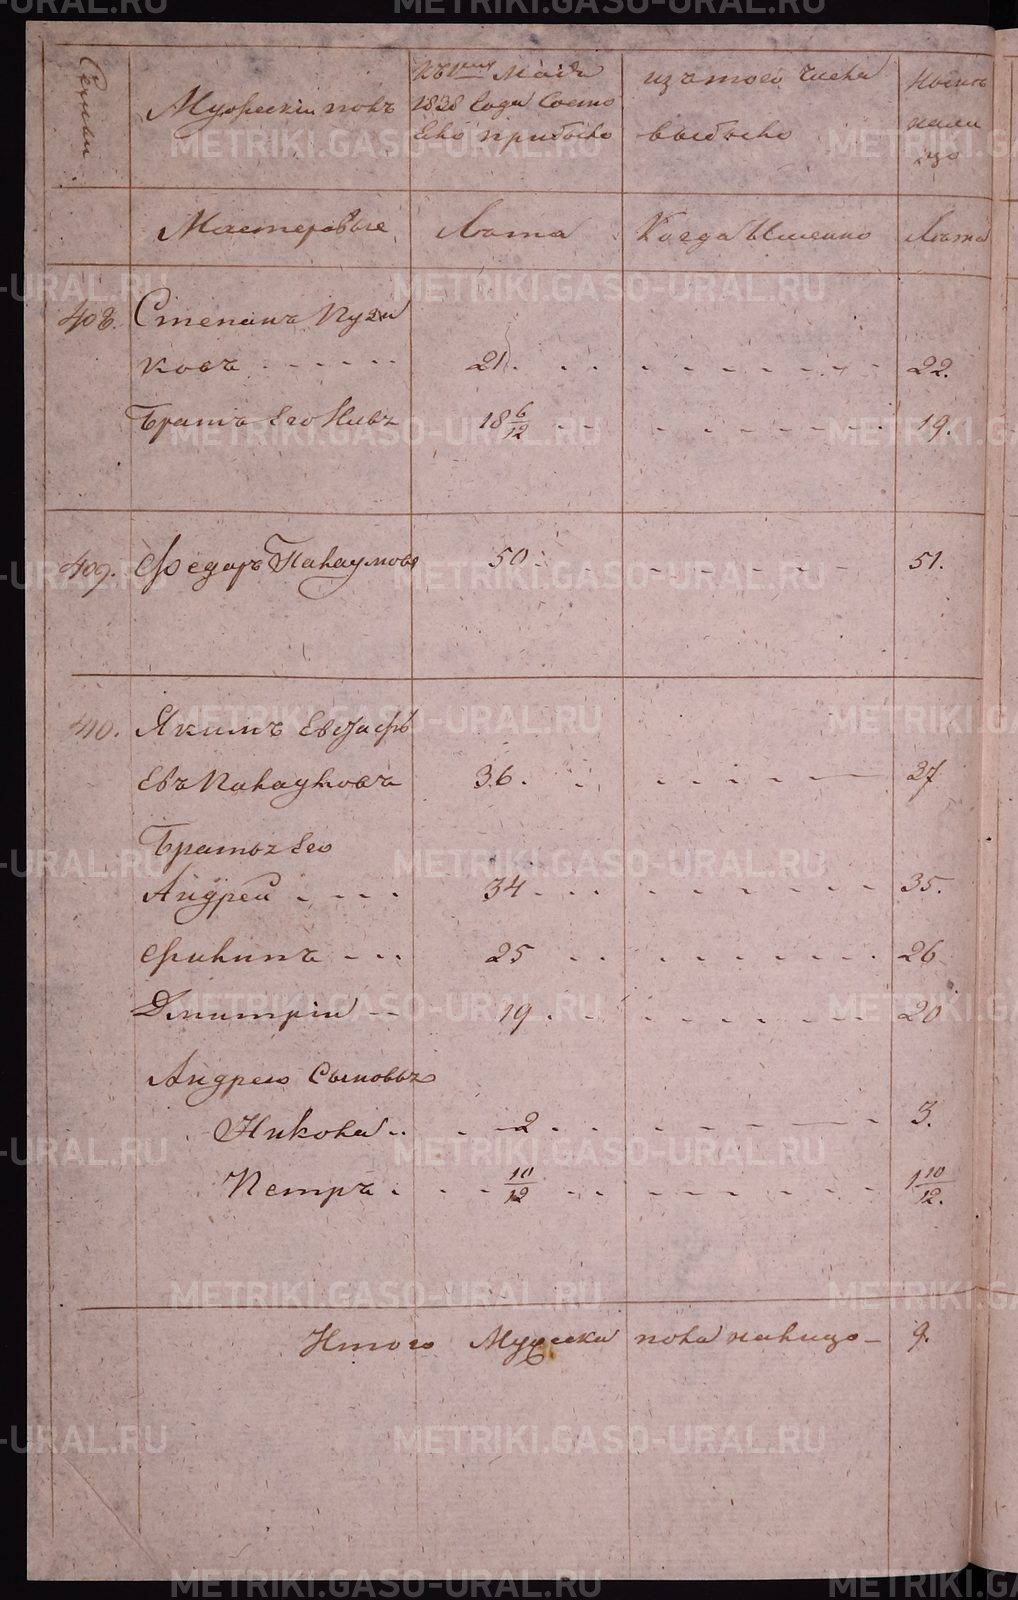 Семьи
Мужескiй полъ
Къ 1му Маiя
1838 Года Состо
Яло прибыло
изъ того числа
выбыло
Ныне
нали
цо
Мастеровые
Лѣта
Когда Именно
Лѣта
408. Степанъ Пузи
ковъ 21. 22.
Братъ Его Илья 18 6/12 19.
409. Федоръ Пакаумовъ 50 51.
410. Якимъ Евстафь
Евъ 36. 37
Братья Его
Андрей 34 35.
Филипъ 25 26
Дмитрiй 19 20
Андрея Сыновья
Никола 2 3.
Петръ 10/12 1 10/12.
Итого Мужеска пола налицо 9.
METRIKI.GASO-URAL.RU